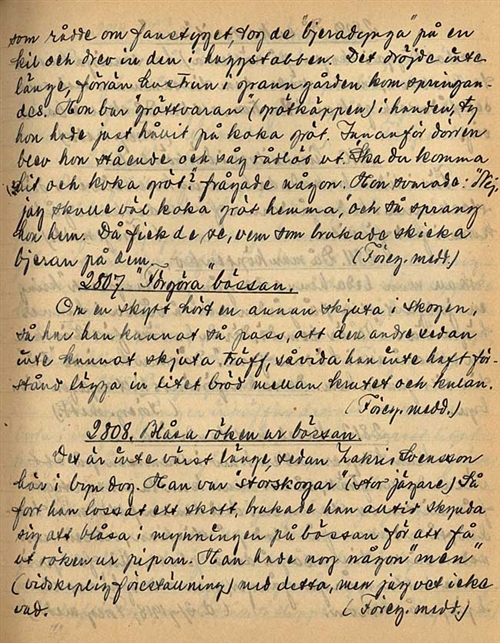 som rådde om fanstyget, tog de "bjeradynga" på en
kil och drev in den i huggstabben. Det dröjde inte
länge, förrän hustrun i granngården kom springan-
des. Hon bar "gröttvaran (grötkäppen) i handen, ty
hon hade just hållit på koka gröt. Innanför dörren
blev hon stående och såg rådlös ut. "Ska du komma
hit och koka gröt?" frågade någon. Hon svarade: "Nej,
jag skulle väl koka gröt hemma," och så sprang
hon hem. Då fick de se, vem som brukade skicka
bjeran på dem. (Föreg. medd.)
2807. "Förgöra" bössan.
Om en skytt hört en annan skjuta i skogen,
så har han kunnat så pass, att den andre sedan
inte kunnat skjuta träff, såvida han inte haft för-
stånd lägga in litet bröd mellan krutet och kulan.
(Föreg. medd.)
2808. Blåsa röken ur bössan.
Det är inte värst länge, sedan Zakris Svensson
här i byn dog. Han var "storskogar" (stor jägare). Så
fort han lossat ett skott, brukade han alltid skynda
sig att blåsa i mynningen på bössan för att få
ut röken ur pipan. Han hade nog någon "men"
(vidskeplig föreställning) med detta, men jag vet icke
vad. (Föreg. medd.)